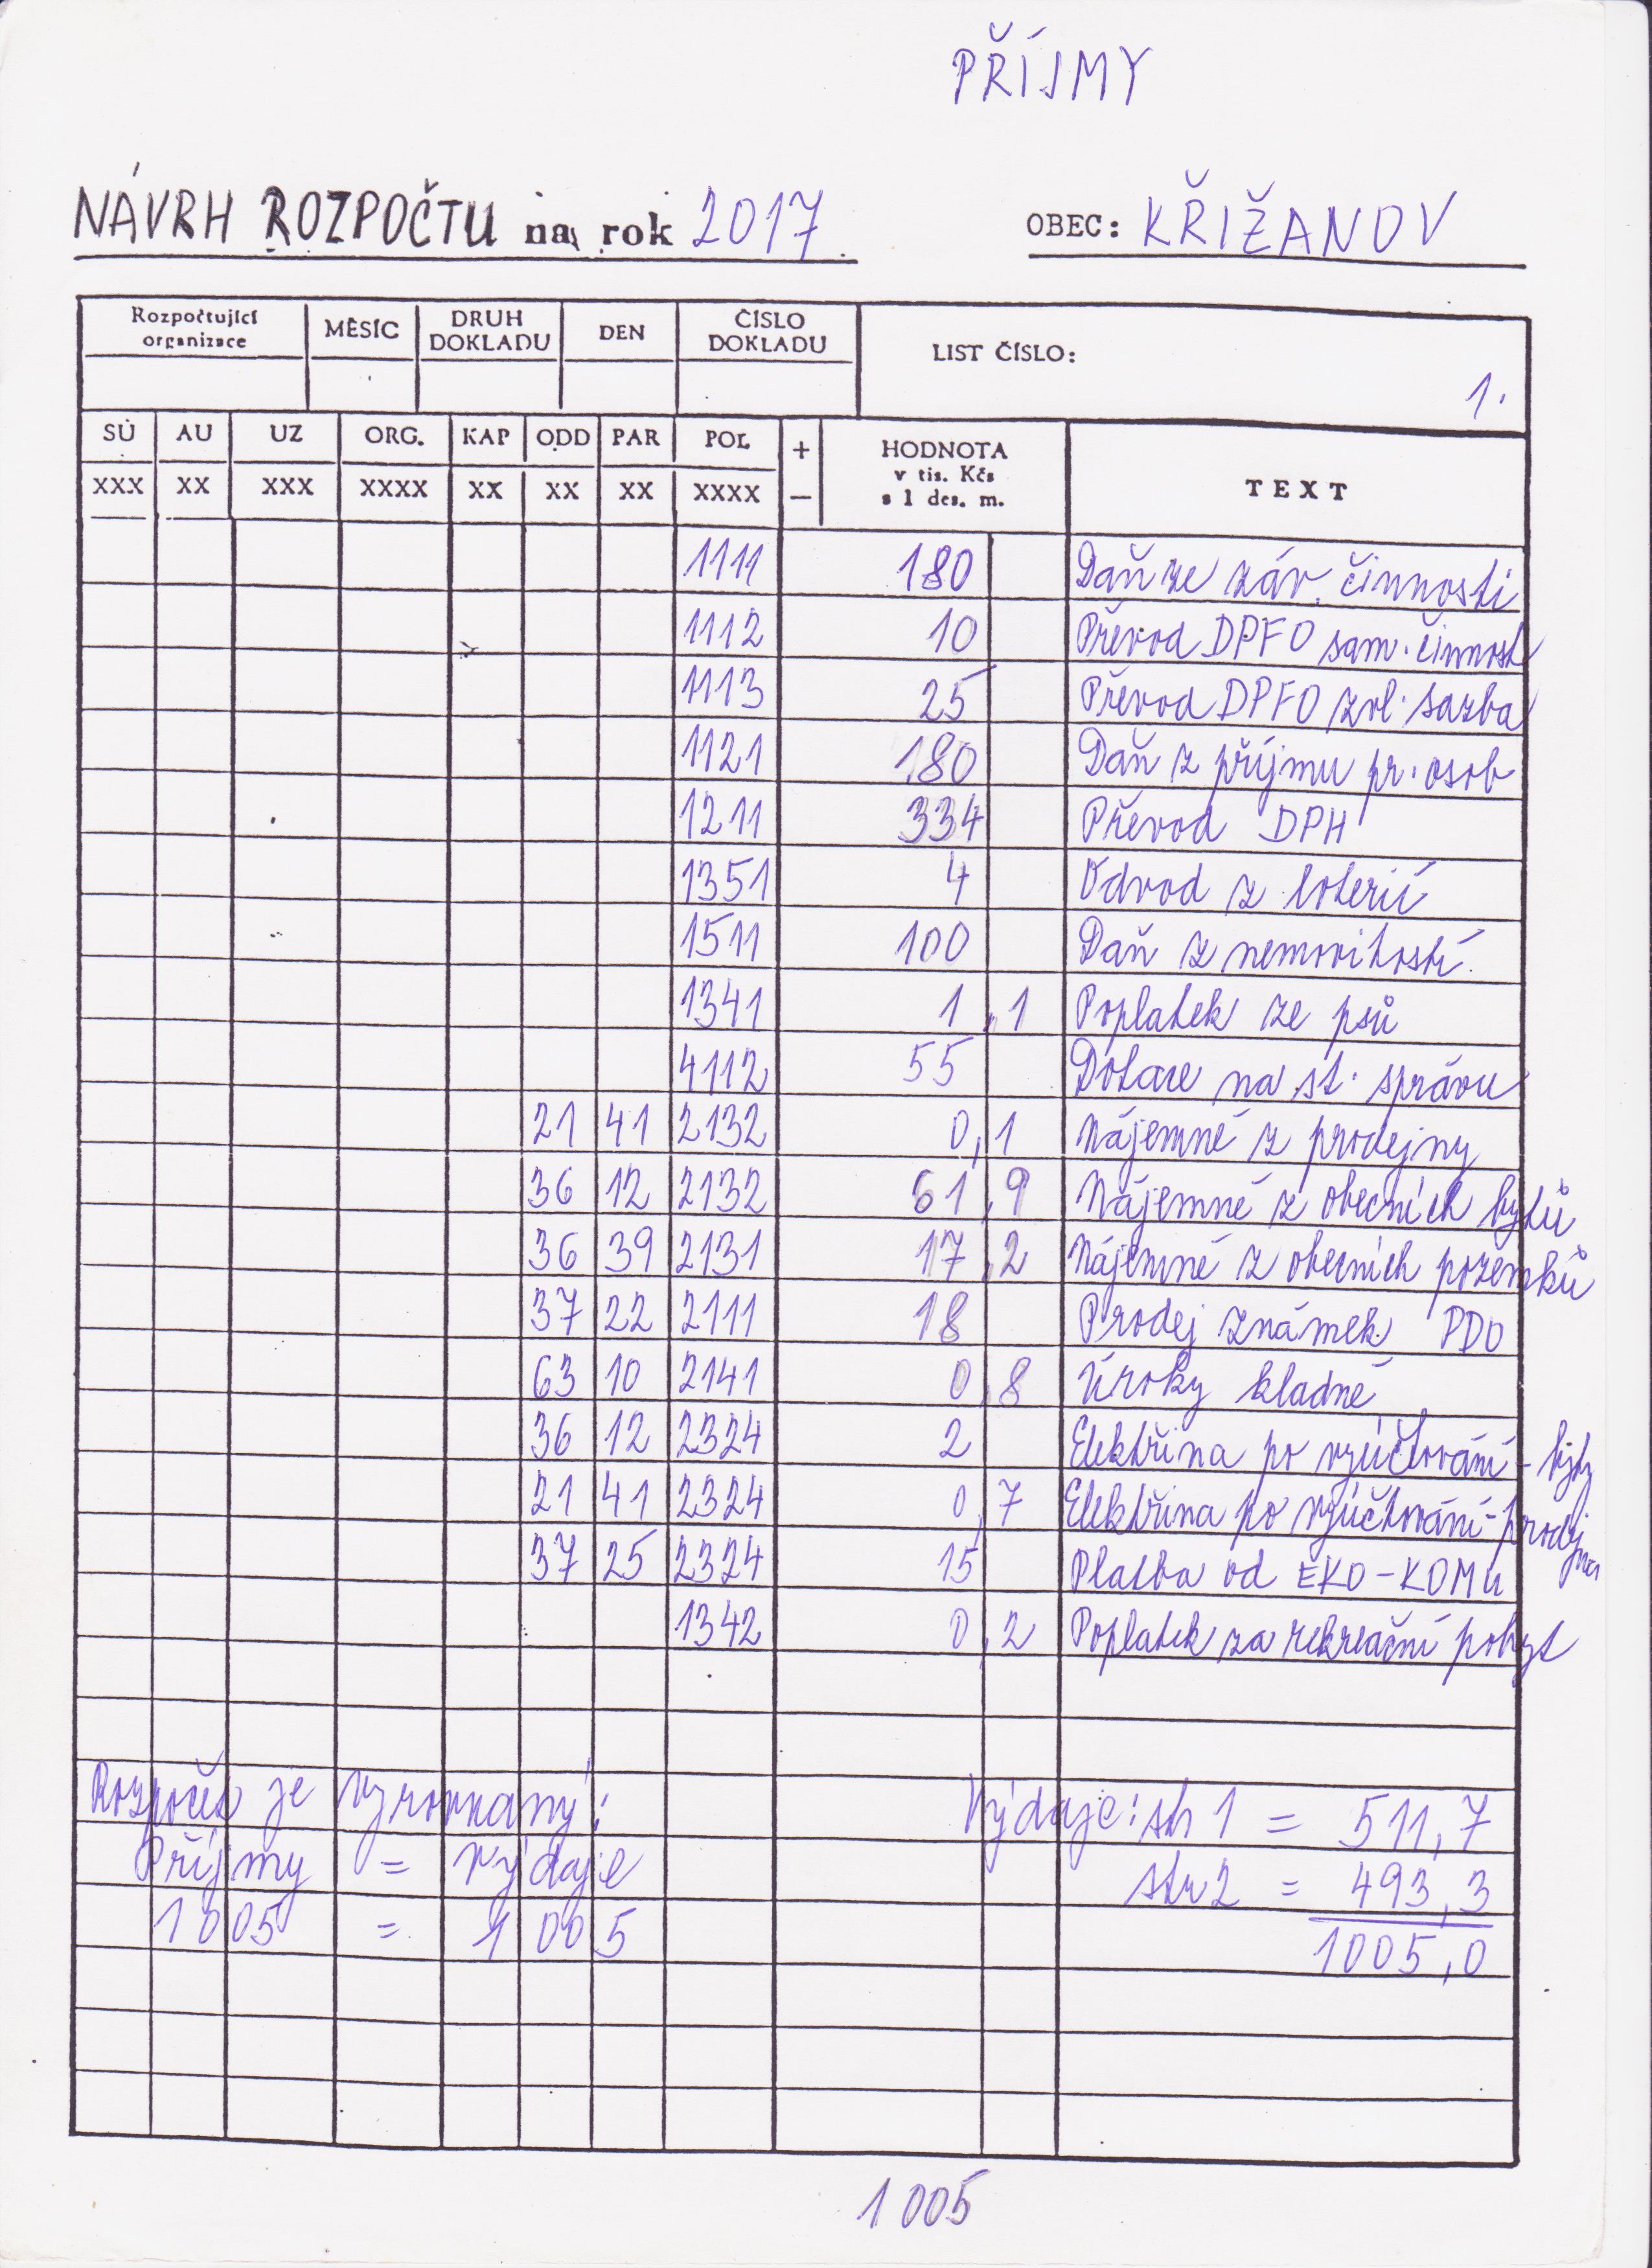 PŘÍJMY
NÁVRH ROZPOČTU na rok 2017 OBEC: KŘIŽANOV
Rozpočtující organizace MĚSÍC DRUH DOKLADU DEN ČÍSLO DOKLADU LIST ČÍSLO: 1.
SÚ AU UZ ORG. KAP ODD PAR POL + HODNOTA v tis. Kčs s 1 des. m. TEXT
XXX XX XXX XXXX XX XX XX XXXX —
1111 180 Daň ze záv. činnosti
1112 10 Převod DPFO sam. činnost
1113 25 Převod DPFO zvl. sazba
1121 180 Daň z příjmu pr. osob
1211 334 Převod DPH
1351 4 Odvod z loterií
1511 100 Daň z nemovitostí.
1341 1,1 Poplatek ze psů
4112 55 Dotace na st. správu
21 41 2132 0,1 Nájemné z prodejny
36 12 2132 61,9 Nájemné z obecních bytů
36 39 2131 17,2 Nájemné z obecních pozemků
37 22 2111 18 Prodej známek PDO
63 10 2141 0,8 Úroky kladné
36 12 2324 2 Elektřina po vyúčtování - byty
21 41 2324 0,7 Elektřina po vyúčtování - prodejna
37 25 2324 15 Platba od EKO-KOMu
1342 0,2 Poplatek za rekreační pobyt
Rozpočet je vyrovnaný: Výdaje: str 1 = 511,7
Příjmy = výdaje str 2 = 493,3
1005 = 1005 1005,0
1 005